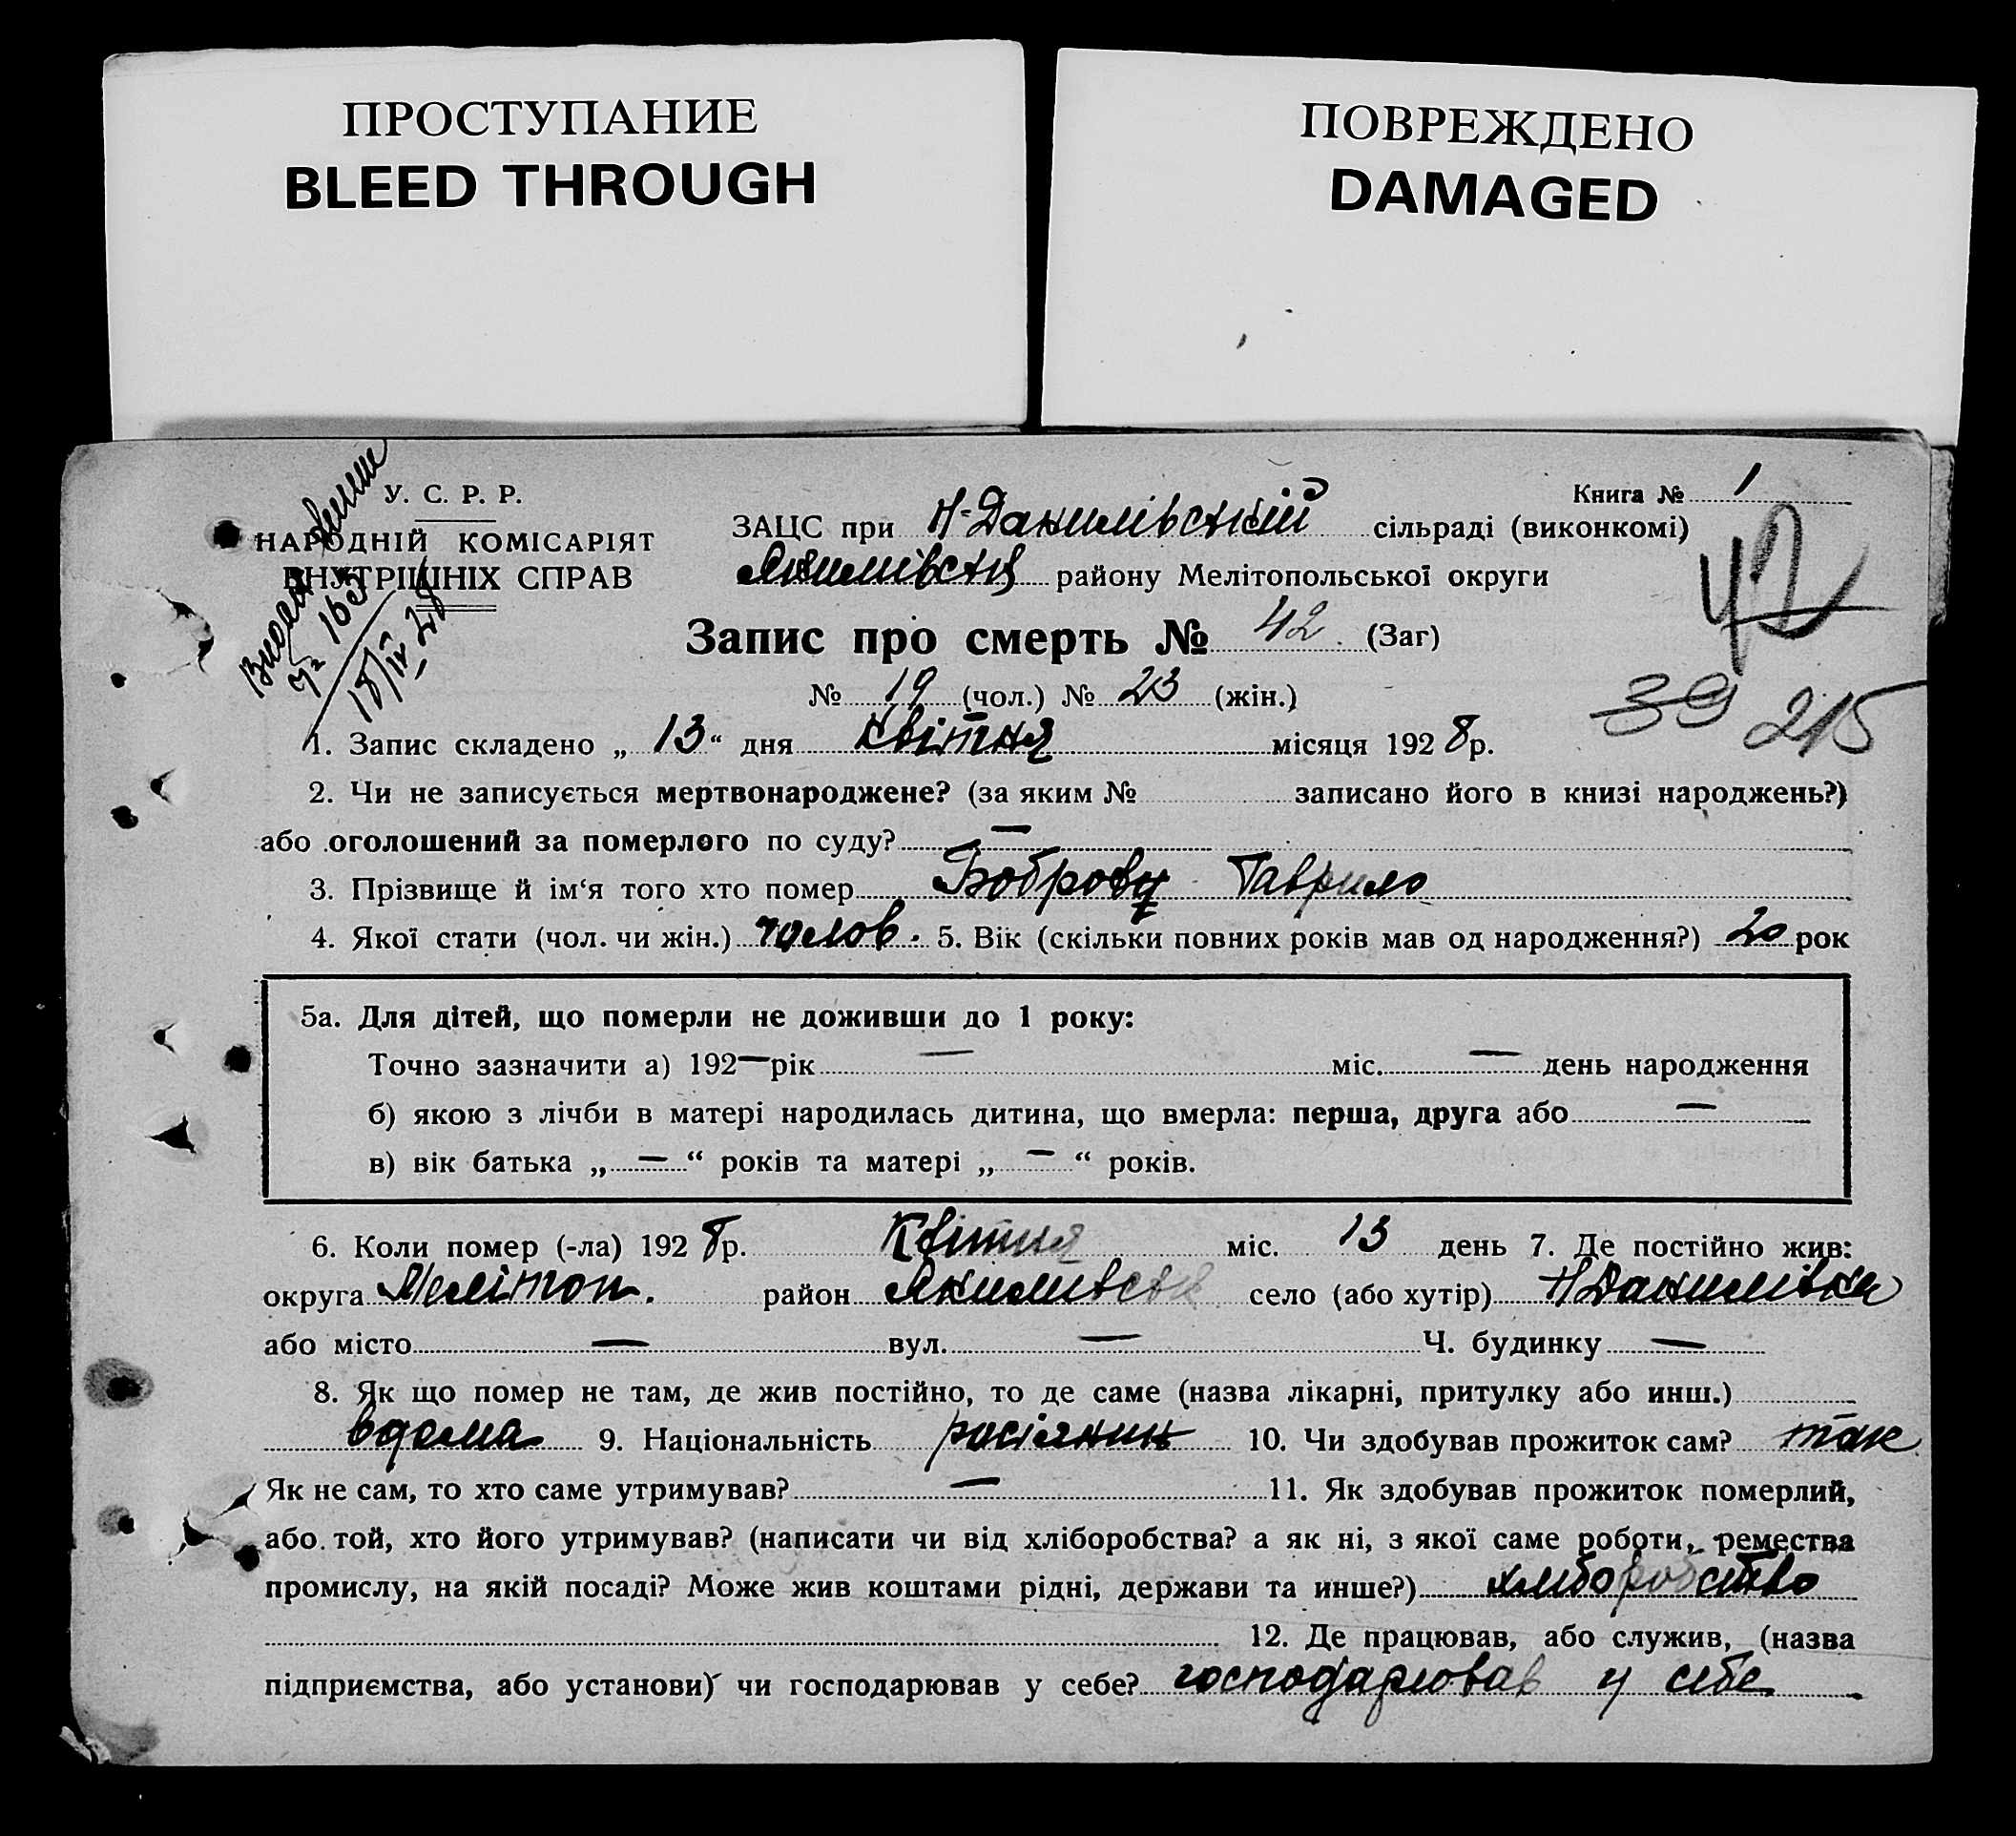 ПРОСТУПАНИЕ
BLEED THROUGH
ПОВРЕЖДЕНО
DAMAGED
У. С. Р. Р.
НАРОДНІЙ КОМІСАРІЯТ
ВНУТРІШНІХ СПРАВ
№ 165
18/IV 28
Книга № 1
ЗАЦС при Н-Данилівській сільраді (виконкомі)
Якимівськ району Мелітопольської округи
42
Запис про смерть № 42. (Заг)
№ 19 (чол.) № 23 (жін.)
39 215
1. Запис складено „ 13 “ дня Квітня місяця 1928 р.
2. Чи не записується мертвонароджене? (за яким № записано його в книзі народжень?)
або оголошений за померлого по суду? —
3. Прізвище й ім‘я того хто помер Гаврило
4. Якої стати (чол. чи жін.) чолов. 5. Вік (скільки повних років мав од народження?) 20 рок
5а. Для дітей, що померли не доживши до 1 року:
Точно зазначити а) 192— рік — міс. — день народження
б) якою з лічби в матері народилась дитина, що вмерла: перша, друга або —
в) вік батька „ — “ років та матері „ — “ років.
6. Коли помер (-ла) 1928 р. Квітня міс. 13 день 7. Де постійно жив:
округа Мелітоп. район Якимівськ село (або хутір) Н Данилівка
або місто — вул. — Ч. будинку —
8. Як що помер не там, де жив постійно, то де саме (назва лікарні, притулку або инш.)
вдома 9. Національність росіянин 10. Чи здобував прожиток сам? так
Як не сам, то хто саме утримував? — 11. Як здобував прожиток померлий,
або той, хто його утримував? (написати чи від хліборобства? а як ні, з якої саме роботи, ремества
промислу, на якій посаді? Може жив коштами рідні, держави та инше?) хліборобство
12. Де працював, або служив, (назва
підприємства, або установи) чи господарював у себе? господарював у себе